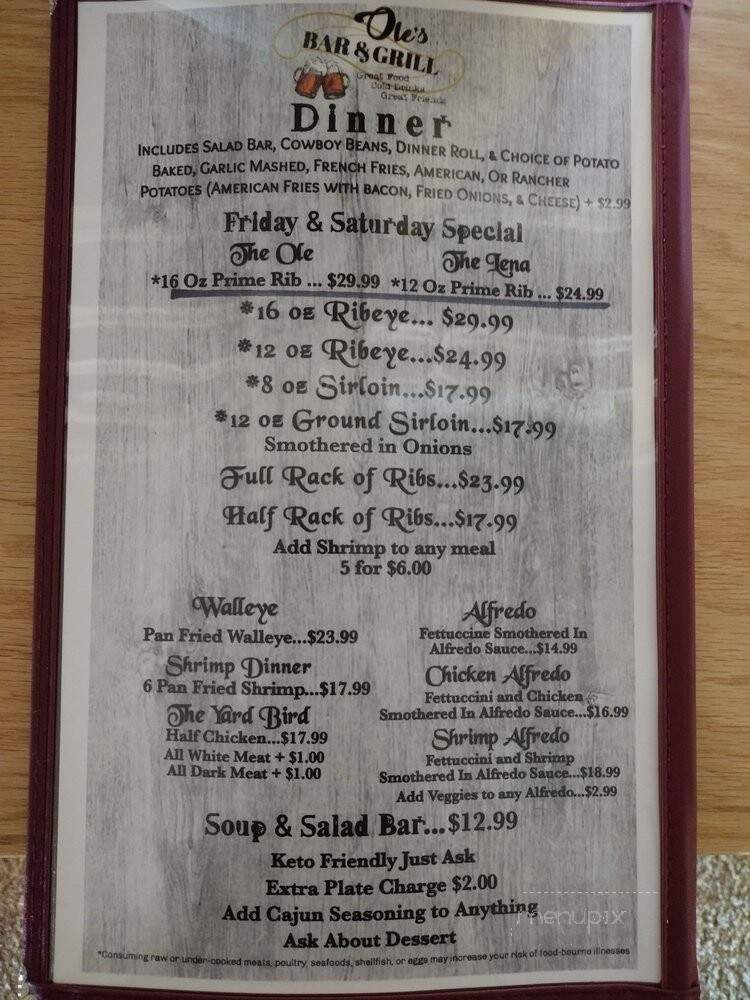 Ole's
BAR & GRILL
Great Food
Cold Drinks
Great Friends
Dinner
INCLUDES SALAD BAR, COWBOY BEANS, DINNER ROLL, & CHOICE OF POTATO
BAKED, GARLIC MASHED, FRENCH FRIES, AMERICAN, OR RANCHER
POTATOES (AMERICAN FRIES WITH BACON, FRIED ONIONS, & CHEESE) + $2.99
Friday & Saturday Special
The Ole
The Lena
*16 Oz Prime Rib ... $29.99
*12 Oz Prime Rib ... $24.99
*16 oz Ribeye... $29.99
*12 oz Ribeye...$24.99
*8 oz Sirloin...$17.99
*12 oz Ground Sirloin...$17.99
Smothered in Onions
Full Rack of Ribs...$23.99
Half Rack of Ribs...$17.99
Add Shrimp to any meal
5 for $6.00
Walleye
Pan Fried Walleye...$23.99
Shrimp Dinner
6 Pan Fried Shrimp...$17.99
The Yard Bird
Half Chicken...$17.99
All White Meat + $1.00
All Dark Meat + $1.00
Alfredo
Fettuccine Smothered In
Alfredo Sauce...$14.99
Chicken Alfredo
Fettuccini and Chicken
Smothered In Alfredo Sauce...$16.99
Shrimp Alfredo
Fettuccini and Shrimp
Smothered In Alfredo Sauce...$18.99
Add Veggies to any Alfredo...$2.99
Soup & Salad Bar...$12.99
Keto Friendly Just Ask
Extra Plate Charge $2.00
Add Cajun Seasoning to Anything
Ask About Dessert
*Consuming raw or under-cooked meats, poultry, seafoods, shellfish, or eggs may increase your risk of food-bourne illnesses
menupix